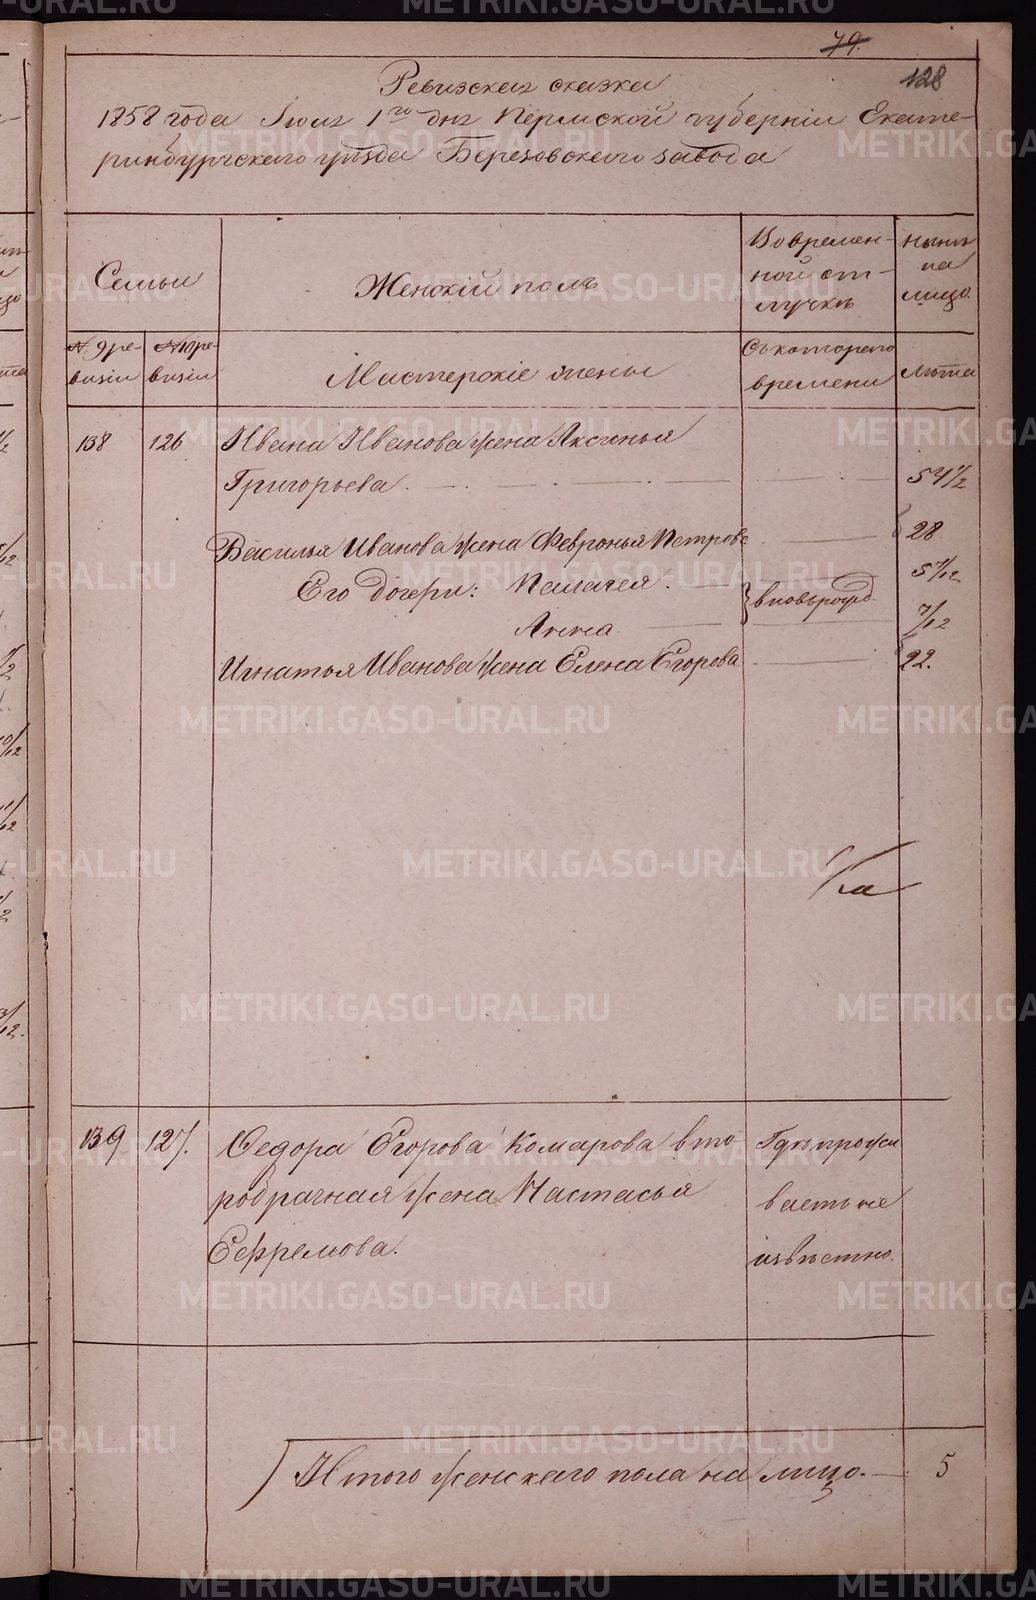 79.
128
Ревизская сказка
1858 года Июля 1го дня Пермской губерніи Екате-
ринбургскаго уѣзда Березовскаго завода
Семьи
Женскій полъ
Во времен-
ной от-
лучкѣ
Нынѣ
на
лицо.
№ 9 ре-
визіи
№ 10 ре-
визіи
Мастерскіе жены
Съ котораго
времени
Лѣта
138
126
Ивана Иванова жена Аксинья
Григорьева
54 1/2
Василья Иванова жена Февронья Петрова
28
Его дочери: Пелагея.
вновьрожд.
5 7/12
Анна
7/12
Игнатья Иванова жена Елена Егорова
22.
139
127.
Федора Егорова Комарова вто
робрачная жена Настасья
Ефремова.
Гдѣ прожи
ваетъ не
извѣстно.
Итого женскаго пола на лицо.
5
METRIKI.GASO-URAL.RU